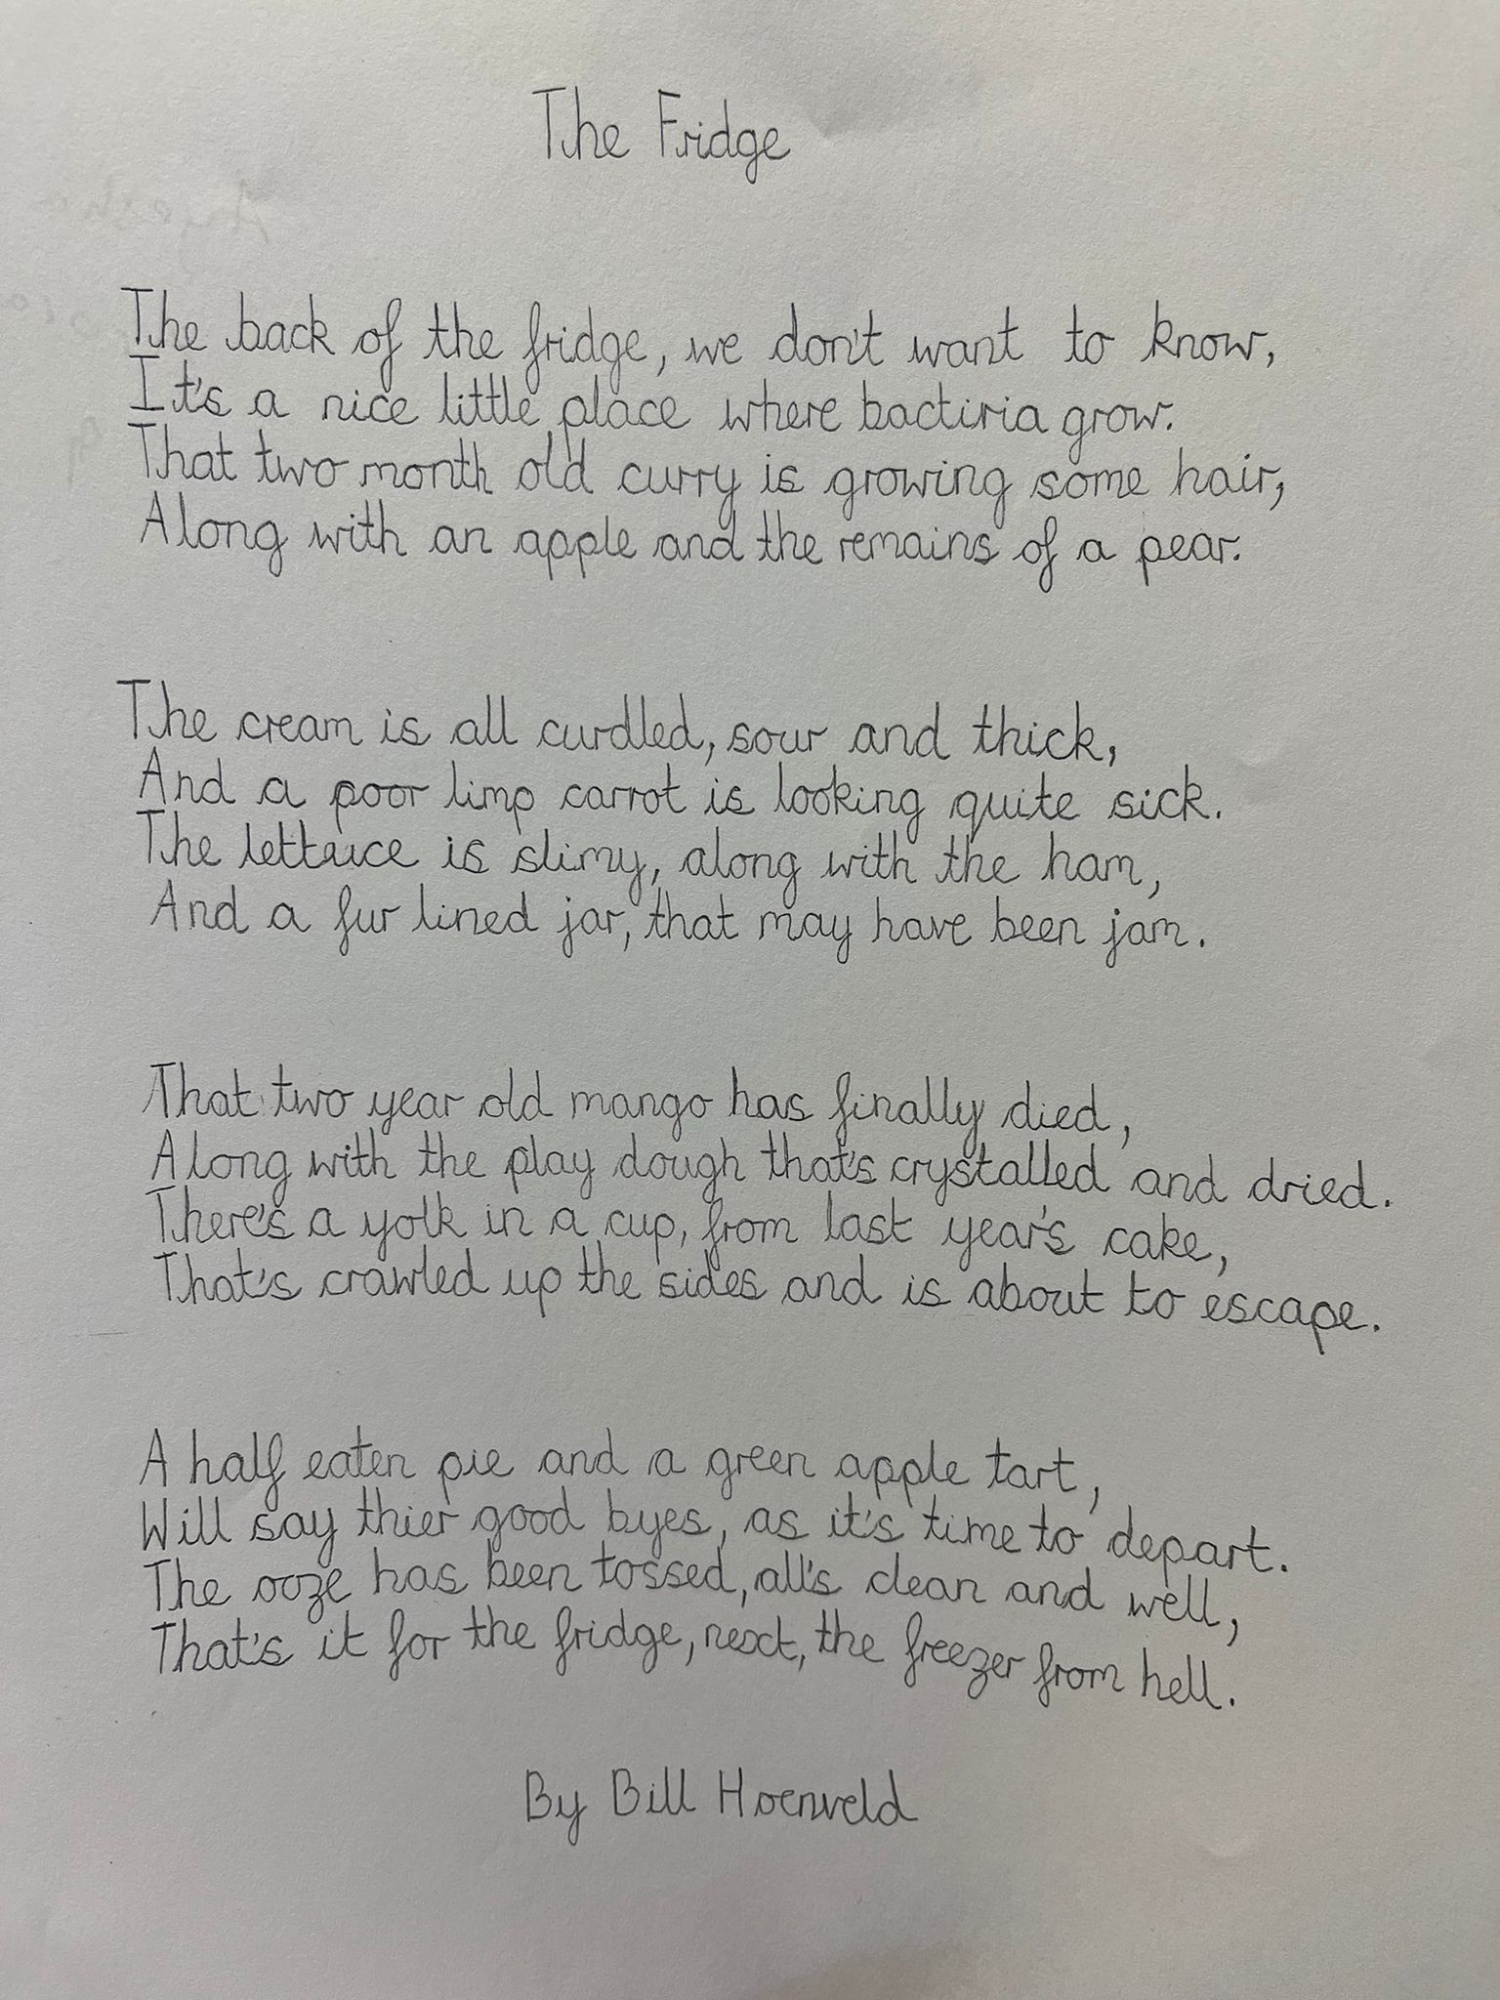 The Fridge
The back of the fridge, we don't want to know,
It's a nice little place where bactiria grow.
That two month old curry is growing some hair,
Along with an apple and the remains of a pear.
The cream is all curdled, sour and thick,
And a poor limp carrot is looking quite sick.
The lettuice is slimy, along with the ham,
And a fur lined jar, that may have been jam.
That two year old mango has finally died,
Along with the play dough that's crystalled and dried.
There's a yolk in a cup, from last year's cake,
That's crawled up the sides and is about to escape.
A half eaten pie and a green apple tart,
Will say thier good byes, as it's time to depart.
The ooze has been tossed, all's clean and well,
That's it for the fridge, next, the freezer from hell.
By Bill Hoenveld